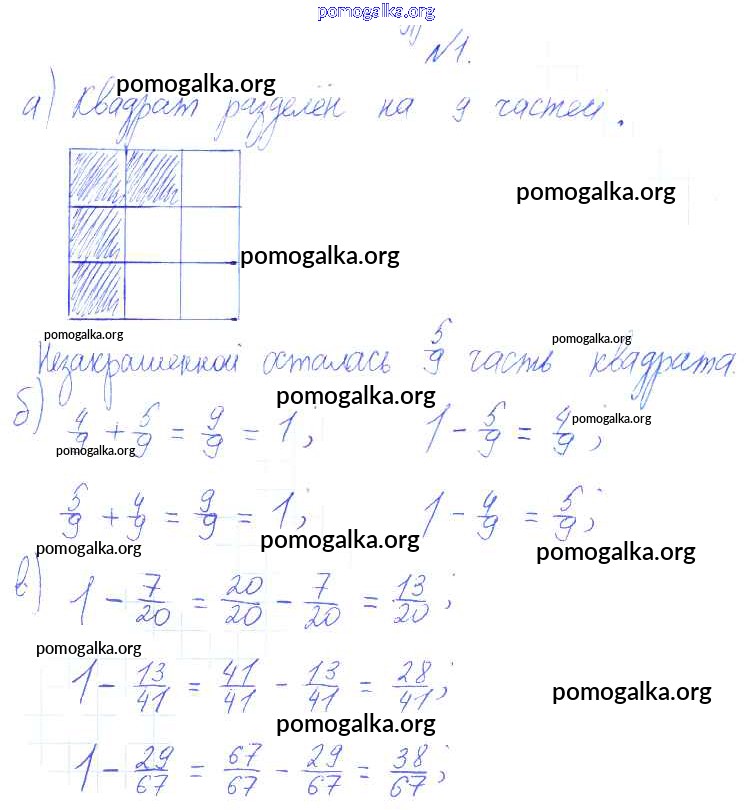 pomogalka.org
№1.
pomogalka.org
а) Квадрат разделён на 9 частей.
pomogalka.org
pomogalka.org
pomogalka.org
pomogalka.org
Незакрашенной осталась 5/9 часть квадрата.
pomogalka.org
pomogalka.org
б) 4/9 + 5/9 = 9/9 = 1; 1 - 5/9 = 4/9;
pomogalka.org
5/9 + 4/9 = 9/9 = 1; 1 - 4/9 = 5/9;
pomogalka.org
pomogalka.org
pomogalka.org
в) 1 - 7/20 = 20/20 - 7/20 = 13/20;
pomogalka.org
1 - 13/41 = 41/41 - 13/41 = 28/41;
pomogalka.org
pomogalka.org
1 - 29/67 = 67/67 - 29/67 = 38/67;